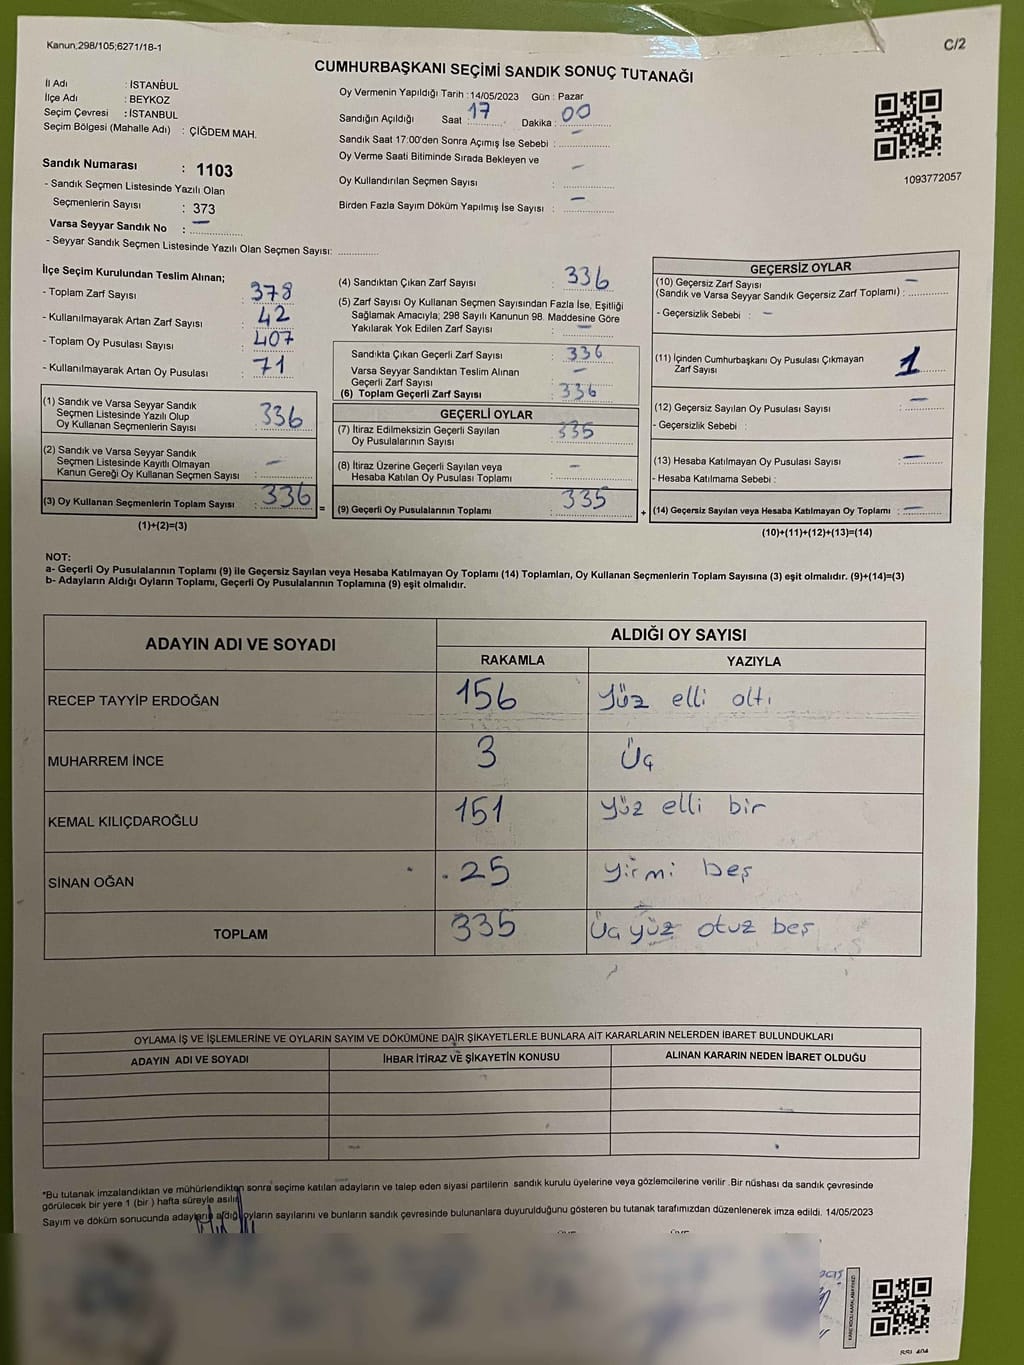 Kanun;298/105;6271/18-1
C/2
CUMHURBAŞKANI SEÇİMİ SANDIK SONUÇ TUTANAĞI
İl Adı : İSTANBUL
İlçe Adı : BEYKOZ
Seçim Çevresi : İSTANBUL
Seçim Bölgesi (Mahalle Adı) : ÇİĞDEM MAH.
Sandık Numarası : 1103
- Sandık Seçmen Listesinde Yazılı Olan
Seçmenlerin Sayısı : 373
Varsa Seyyar Sandık No : —
- Seyyar Sandık Seçmen Listesinde Yazılı Olan Seçmen Sayısı: ..............
Oy Vermenin Yapıldığı Tarih :14/05/2023 Gün : Pazar
Sandığın Açıldığı Saat : 17 Dakika : 00
Sandık Saat 17:00'den Sonra Açımış İse Sebebi : —
Oy Verme Saati Bitiminde Sırada Bekleyen ve
Oy Kullandırılan Seçmen Sayısı : —
Birden Fazla Sayım Döküm Yapılmış İse Sayısı : —
1093772057
İlçe Seçim Kurulundan Teslim Alınan;
- Toplam Zarf Sayısı : 378
- Kullanılmayarak Artan Zarf Sayısı : 42
- Toplam Oy Pusulası Sayısı : 407
- Kullanılmayarak Artan Oy Pusulası : 71
(1) Sandık ve Varsa Seyyar Sandık
Seçmen Listesinde Yazılı Olup
Oy Kullanan Seçmenlerin Sayısı : 336
(2) Sandık ve Varsa Seyyar Sandık
Seçmen Listesinde Kayıtlı Olmayan
Kanun Gereği Oy Kullanan Seçmen Sayısı : —
(3) Oy Kullanan Seçmenlerin Toplam Sayısı : 336
(1)+(2)=(3)
=
(4) Sandıktan Çıkan Zarf Sayısı : 336
(5) Zarf Sayısı Oy Kullanan Seçmen Sayısından Fazla İse, Eşitliği
Sağlamak Amacıyla; 298 Sayılı Kanunun 98. Maddesine Göre
Yakılarak Yok Edilen Zarf Sayısı : —
Sandıkta Çıkan Geçerli Zarf Sayısı : 336
Varsa Seyyar Sandıktan Teslim Alınan
Geçerli Zarf Sayısı : —
(6) Toplam Geçerli Zarf Sayısı : 336
GEÇERLİ OYLAR
(7) İtiraz Edilmeksizin Geçerli Sayılan
Oy Pusulalarının Sayısı : 335
(8) İtiraz Üzerine Geçerli Sayılan veya
Hesaba Katılan Oy Pusulası Toplamı : —
(9) Geçerli Oy Pusulalarının Toplamı : 335
+
GEÇERSİZ OYLAR
(10) Geçersiz Zarf Sayısı
(Sandık ve Varsa Seyyar Sandık Geçersiz Zarf Toplamı) : —
- Geçersizlik Sebebi : —
(11) İçinden Cumhurbaşkanı Oy Pusulası Çıkmayan
Zarf Sayısı : 1
(12) Geçersiz Sayılan Oy Pusulası Sayısı : —
- Geçersizlik Sebebi :
(13) Hesaba Katılmayan Oy Pusulası Sayısı : —
- Hesaba Katılmama Sebebi :
(14) Geçersiz Sayılan veya Hesaba Katılmayan Oy Toplamı : —
(10)+(11)+(12)+(13)=(14)
NOT:
a- Geçerli Oy Pusulalarının Toplamı (9) ile Geçersiz Sayılan veya Hesaba Katılmayan Oy Toplamı (14) Toplamları, Oy Kullanan Seçmenlerin Toplam Sayısına (3) eşit olmalıdır. (9)+(14)=(3)
b- Adayların Aldığı Oyların Toplamı, Geçerli Oy Pusulalarının Toplamına (9) eşit olmalıdır.
ADAYIN ADI VE SOYADI ALDIĞI OY SAYISI
RAKAMLA YAZIYLA
RECEP TAYYİP ERDOĞAN 156 Yüz elli altı
MUHARREM İNCE 3 Üç
KEMAL KILIÇDAROĞLU 151 Yüz elli bir
SİNAN OĞAN 25 yirmi beş
TOPLAM 335 Üç yüz otuz beş
OYLAMA İŞ VE İŞLEMLERİNE VE OYLARIN SAYIM VE DÖKÜMÜNE DAİR ŞİKAYETLERLE BUNLARA AİT KARARLARIN NELERDEN İBARET BULUNDUKLARI
ADAYIN ADI VE SOYADI İHBAR İTİRAZ VE ŞİKAYETİN KONUSU ALINAN KARARIN NEDEN İBARET OLDUĞU
*Bu tutanak imzalandıktan ve mühürlendikten sonra seçime katılan adayların ve talep eden siyasi partilerin sandık kurulu üyelerine veya gözlemcilerine verilir .Bir nüshası da sandık çevresinde
görülecek bir yere 1 (bir ) hafta süreyle asılır
Sayım ve döküm sonucunda adayların aldığı oyların sayılarını ve bunların sandık çevresinde bulunanlara duyurulduğunu gösteren bu tutanak tarafımızdan düzenlenerek imza edildi. 14/05/2023